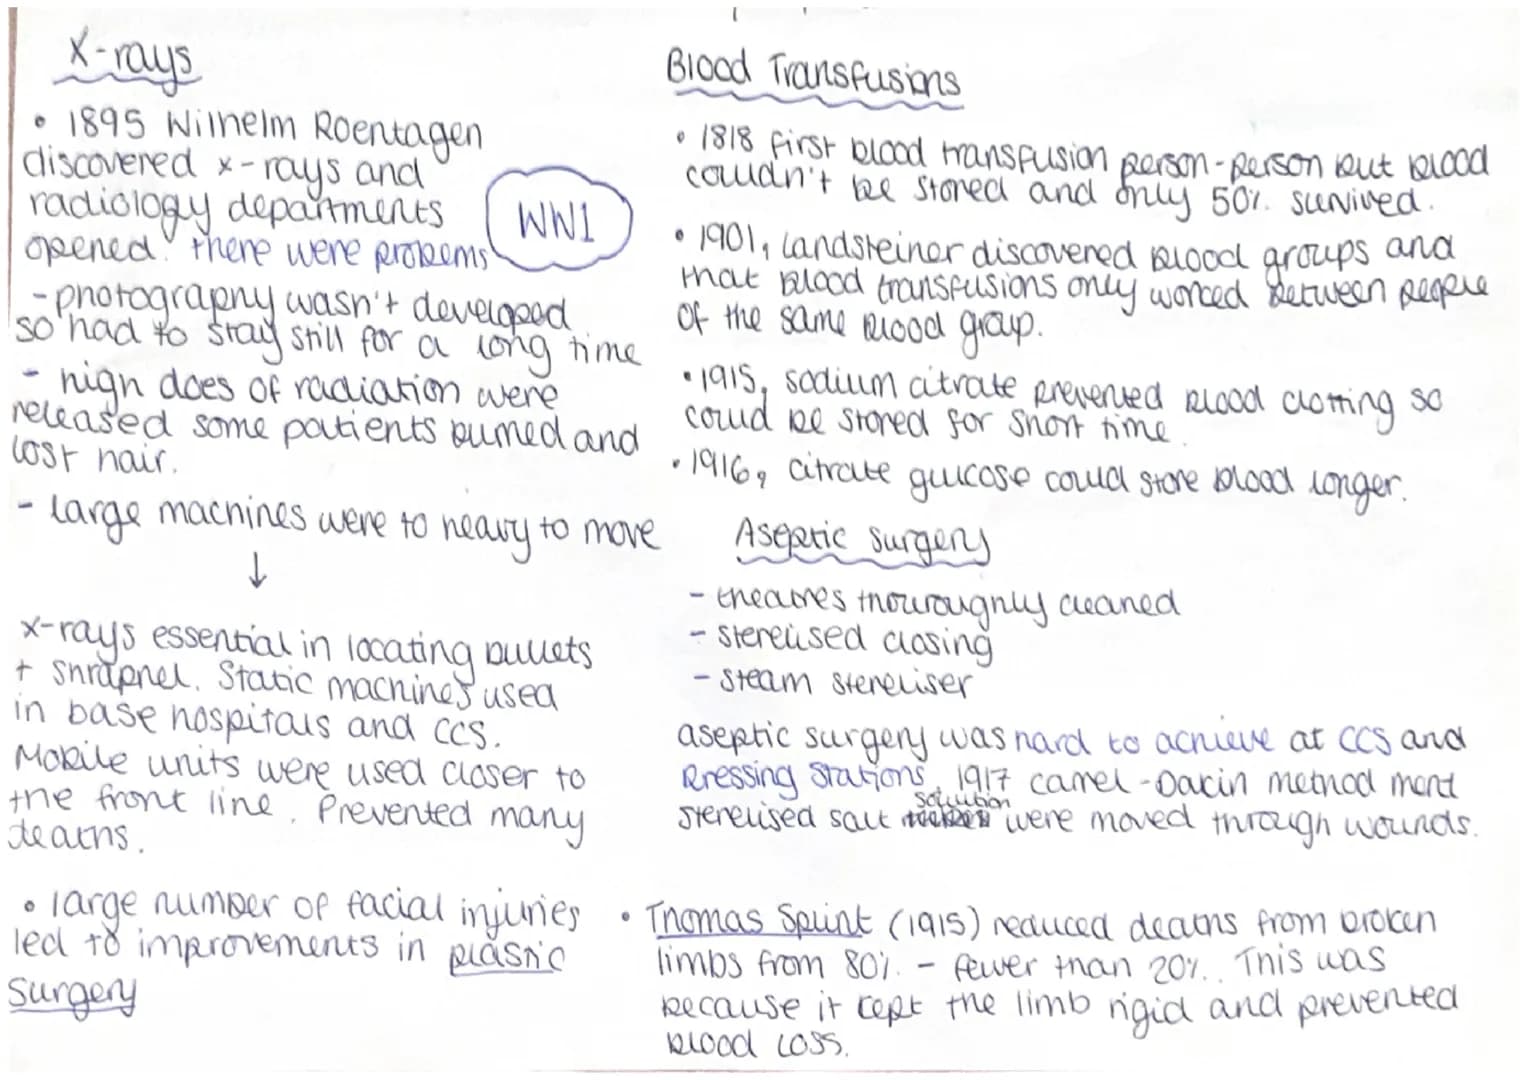 X-rays
• 1895 Wilhelm Roentagen
discovered x-rays and
radiology departments
opened. there were problems
- photography wasn't developed
so had to stay still for a long time
- high does of radiation were
released some patients burned and
lost hair.
- large machines were to heavy to move
↓
x-rays essential in locating bullets
+ shrapnel. Static machines used
in base hospitals and CCS.
Mobile units were used closer to
the front line. Prevented many
deaths.
• large number of facial injuries
led to improvements in plastic
surgery
WW1
Blood Transfusions
• 1818 first blood transfusion person-person but blood
couldn't be stored and only 50% survived.
• 1901, Landsteiner discovered blood groups and
that blood transfusions only worked between people
of the same blood group.
• 1915, sodium citrate prevented blood clotting so
could be stored for short time.
• 1916, citrate glucose could store blood longer.
Aseptic surgery
- theatres thouroughly cleaned
- sterelised closing
- steam stereliser
aseptic surgery was hard to achieve at CCS and
Dressing Stations, 1917 carrel-Dakin method ment
sterelised salt solution were moved through wounds.
• Thomas Splint (1915) reduced deaths from broken
limbs from 80% - fewer than 20%. This was
because it kept the limb rigid and prevented
blood loss.